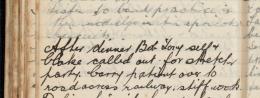 to band practice is
After dinner Bob Tory self &
Blake called out for stretcher
party. Carry patient over to
road across railway. Stiff work.